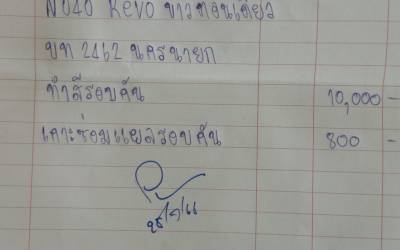 Revo ขาวตอนเดียว
บท 2462 นครนายก
ทำสีรอบคัน 10,000 -
เคาะซ่อมแผลรอบคัน 800 -